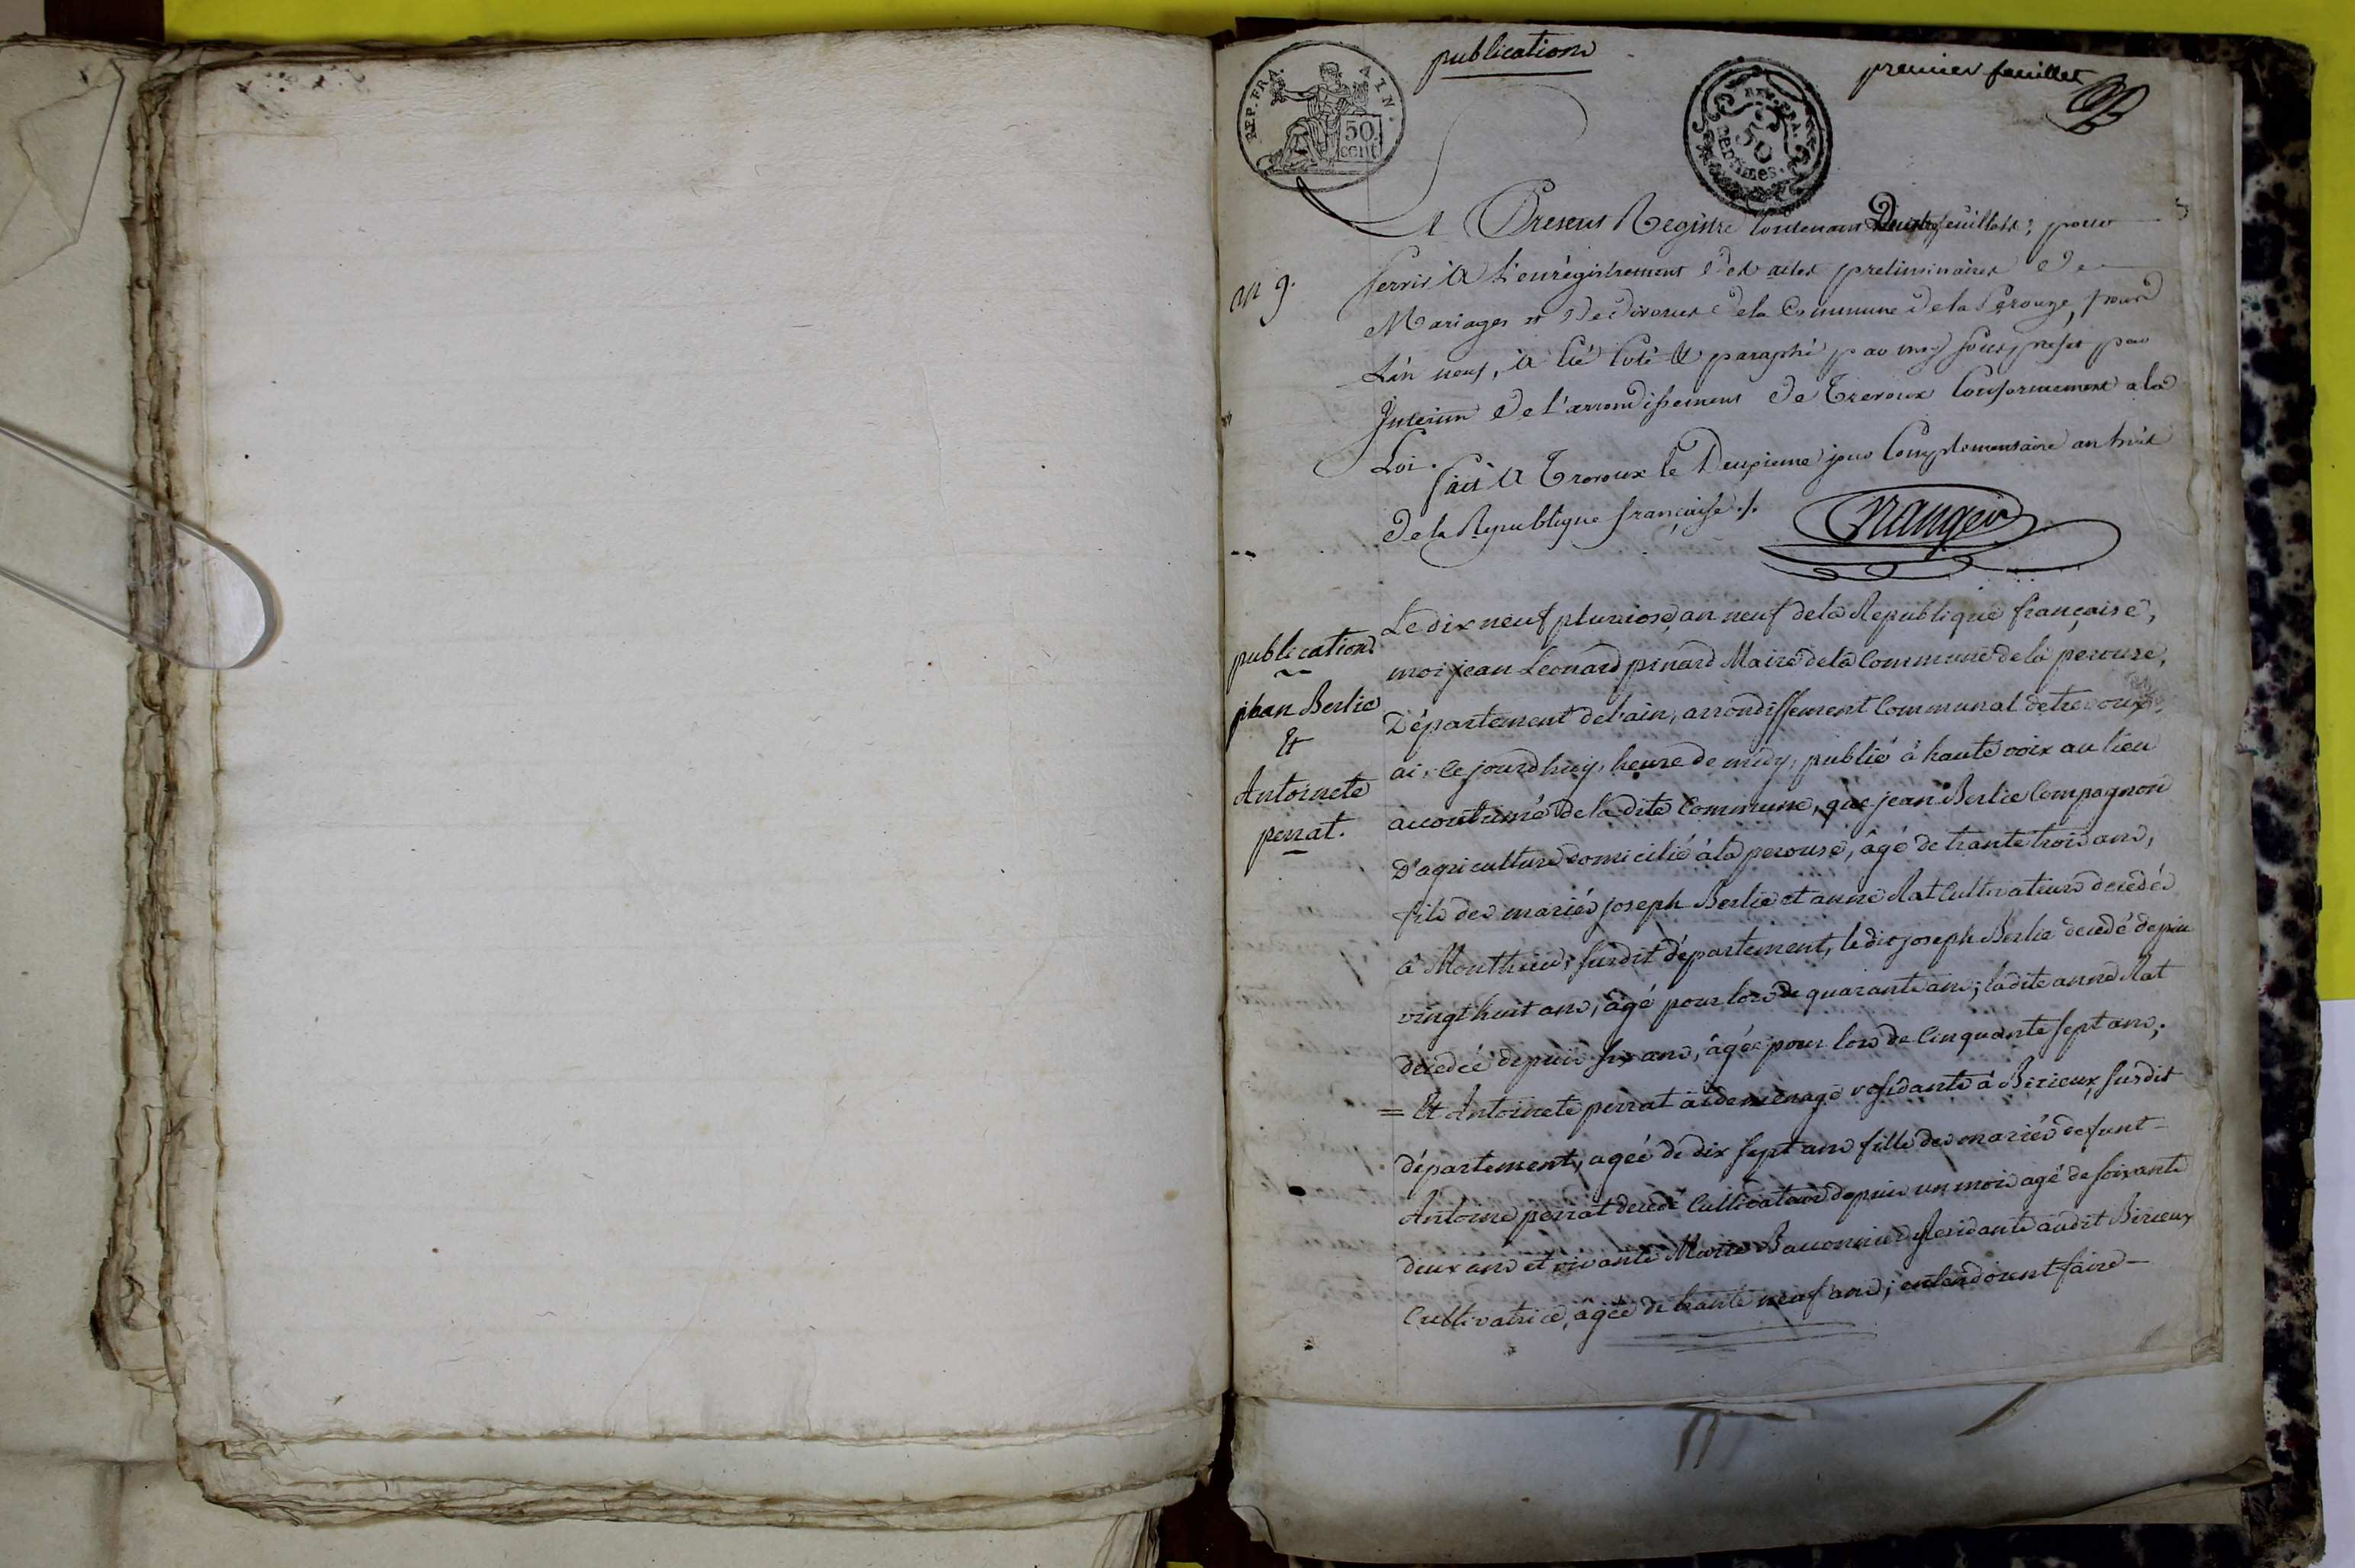 publication
premier feuillet
REP. FRA. NLA.
50 cent
REP. FRA.
50
centimes.
Le Present Registre Contenant feuillets; pour
an 9.
servir a L'enregistrement des actes preliminaires de
Mariages et de divorces de la Commune de la Perouze, pour
L'an neuf, a été Coté & paraphé par moy sous prefet par
Interim de l'arrondissement de Trevoux Conformement a la
Loi.
fait a Trevoux le Deuxieme jour Complementaire an huit
de la Republique française ./.
publication
jean Berlie
Et
Antoinete
perrat.
Le dix neuf pluviose, an neuf de la Republique française,
moi jean Leonard pinard Maire de la Commune de la perouse,
Département de l'ain, arrondissement Communal de trevoux,
ai, ce jourd'huy, heure de midy, publié à haute voix au lieu
accoutumé de la dite Commune, que jean Berlie Compagnon
D'agriculture domicilié à la perouse, âgé de trante trois ans,
fils des mariés joseph Berlie et anne Rat Cultivateurs decedés
à Monthieu, susdit département, le dit joseph Berlie decedé depuis
vingt huit ans, âgé pour lors de quarante ans; la dite anne Rat
decedée depuis six ans, âgée pour lors de Cinquante sept ans;
= Et Antoinete perrat aide menage residante à Birieux, susdit
département, agée de dix sept ans fille des mariés defunt
Antoine perrat decedé Cultivateur depuis un mois agé de soixante
deux ans et vivante Marie Residante audit Birieux
Cultivatrice, âgée de trante neuf ans; entendoient faire